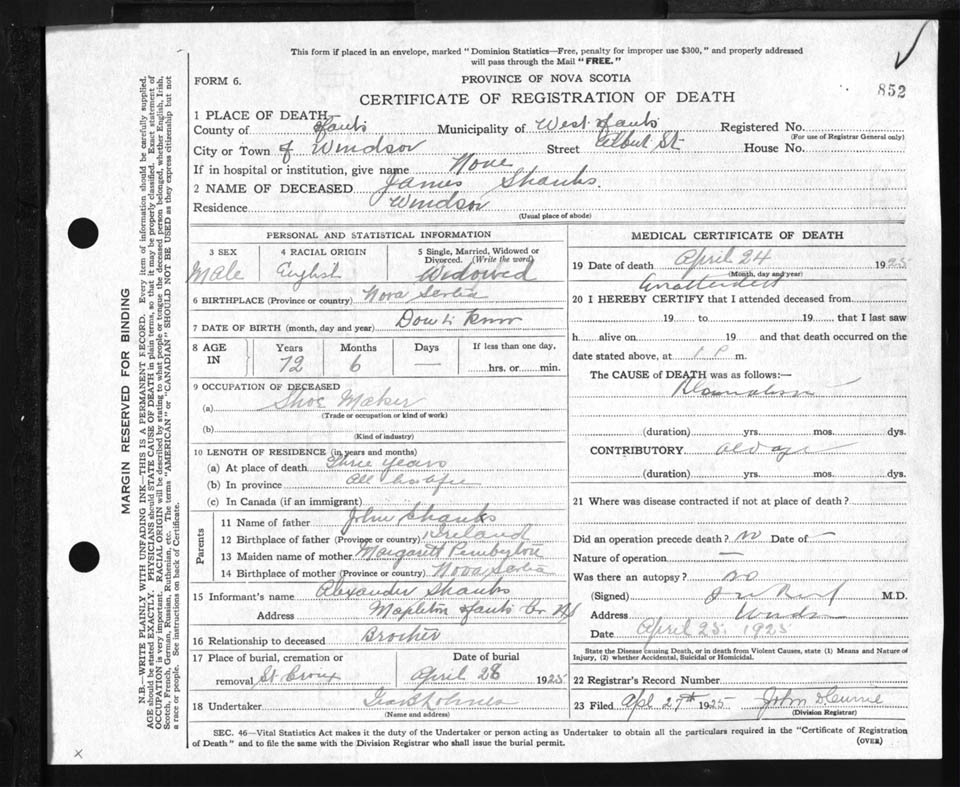 This form if placed in an envelope, marked "Dominion Statistics—Free, penalty for improper use $300," and properly addressed
will pass through the Mail "FREE."
FORM 6.
PROVINCE OF NOVA SCOTIA
852
CERTIFICATE OF REGISTRATION OF DEATH
1 PLACE OF DEATH
County of Hants Municipality of West Hants Registered No.
(For use of Registrar General only)
City or Town of Windsor Street Albert St. House No.
If in hospital or institution, give name None
2 NAME OF DECEASED James Shanks.
Residence Windsor
(Usual place of abode)
PERSONAL AND STATISTICAL INFORMATION
3 SEX Male
4 RACIAL ORIGIN English
5 Single, Married, Widowed or Divorced. (Write the word) Widowed
6 BIRTHPLACE (Province or country) Nova Scotia
7 DATE OF BIRTH (month, day and year) Don't Know
8 AGE IN Years 72 Months 6 Days — If less than one day, hrs. or min.
9 OCCUPATION OF DECEASED
(a) Shoe Maker
(Trade or occupation or kind of work)
(b)
(Kind of industry)
10 LENGTH OF RESIDENCE (in years and months)
(a) At place of death Three Years
(b) In province All his life
(c) In Canada (if an immigrant)
Parents
11 Name of father John Shanks
12 Birthplace of father (Province or country) Ireland
13 Maiden name of mother Margarett
14 Birthplace of mother (Province or country) Nova Scotia
15 Informant's name Alexander Shanks
Address Mapleton Hants Co. NS
16 Relationship to deceased Brother
17 Place of burial, cremation or removal St Croix Date of burial April 26 1925
18 Undertaker
(Name and address)
MEDICAL CERTIFICATE OF DEATH
19 Date of death April 24 1925
(Month, day and year)
Unattended
20 I HEREBY CERTIFY that I attended deceased from
19 to 19 that I last saw
h alive on 19 and that death occurred on the
date stated above, at 1 P m.
The CAUSE of DEATH was as follows:—
(duration) yrs. mos. dys.
CONTRIBUTORY old age
(duration) yrs. mos. dys.
21 Where was disease contracted if not at place of death?
Did an operation precede death? no Date of —
Nature of operation —
Was there an autopsy? no
(Signed) M.D.
Address Windsor
Date April 25, 1925
State the Disease causing Death, or in death from Violent Causes, state (1) Means and Nature of
Injury, (2) whether Accidental, Suicidal or Homicidal.
22 Registrar's Record Number
23 Filed Apl 27th 1925 John D Currie
(Division Registrar)
SEC. 46—Vital Statistics Act makes it the duty of the Undertaker or person acting as Undertaker to obtain all the particulars required in the "Certificate of Registration
of Death" and to file the same with the Division Registrar who shall issue the burial permit.
(OVER)
MARGIN RESERVED FOR BINDING
N.B.—WRITE PLAINLY WITH UNFADING INK—THIS IS A PERMANENT RECORD. Every item of information should be carefully supplied.
AGE should be stated EXACTLY. PHYSICIANS should STATE CAUSE OF DEATH in plain terms, so that it may be properly classified. Exact statement of
OCCUPATION is very important. RACIAL ORIGIN will be described by stating to what people or tongue the deceased person belonged, whether English, Irish,
Scotch, French, German, Russian, Ruthenian, etc. The terms "AMERICAN" or "CANADIAN" SHOULD NOT BE USED as they express citizenship but not
a race or people. See instructions on back of Certificate.
x